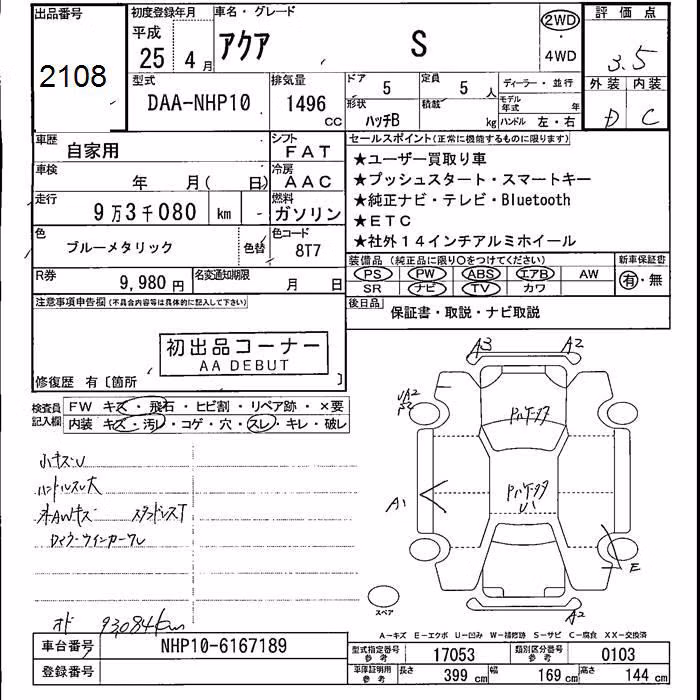 出品番号
2108
初度登録年月
平成
25 年 4 月
車名・グレード
アクア S
2WD
・
4WD
評価点
3.5
外装 内装
D C
型式
DAA-NHP10
排気量
1496 cc
ドア
5
形状
ハッチB
定員
5 人
積載
kg
ディーラー・並行
モデル年式 年
ハンドル 左・右
車歴
自家用
シフト
FAT
車検
年 月( 日)
冷房
AAC
走行
9万3千080 km -
燃料
ガソリン
色
ブルーメタリック
色替
色コード
8T7
R券
9,980円
名変通知期限
月 日
セールスポイント(正常に機能するものに限ります)
★ユーザー買取り車
★プッシュスタート・スマートキー
★純正ナビ・テレビ・Bluetooth
★ETC
★社外14インチアルミホイール
装備品(純正品に限り○をつけてください)
PS PW ABS エアB AW
SR ナビ TV カワ
新車保証書
有・無
後日品
保証書・取説・ナビ取説
注意事項申告欄(不具合内容等は具体的に記入して下さい)
初出品コーナー
AA DEBUT
修復歴 有〔箇所 〕
検査員記入欄
FW キズ・飛石・ヒビ割・リペア跡・×要
内装 キズ・汚レ・コゲ・穴・スレ・キレ・破レ
小キズU
ハンドルスレ大
オド 93,084km
A3 A2
A1
U1
E
A2
スペア
A-キズ E-エクボ U-凹み W-補修跡 S-サビ C-腐食 XX-交換済
車台番号
NHP10-6167189
登録番号
型式指定番号
参考
17053
類別区分番号
参考
0103
車庫証明用
参考
長さ 399 cm 幅 169 cm 高さ 144 cm